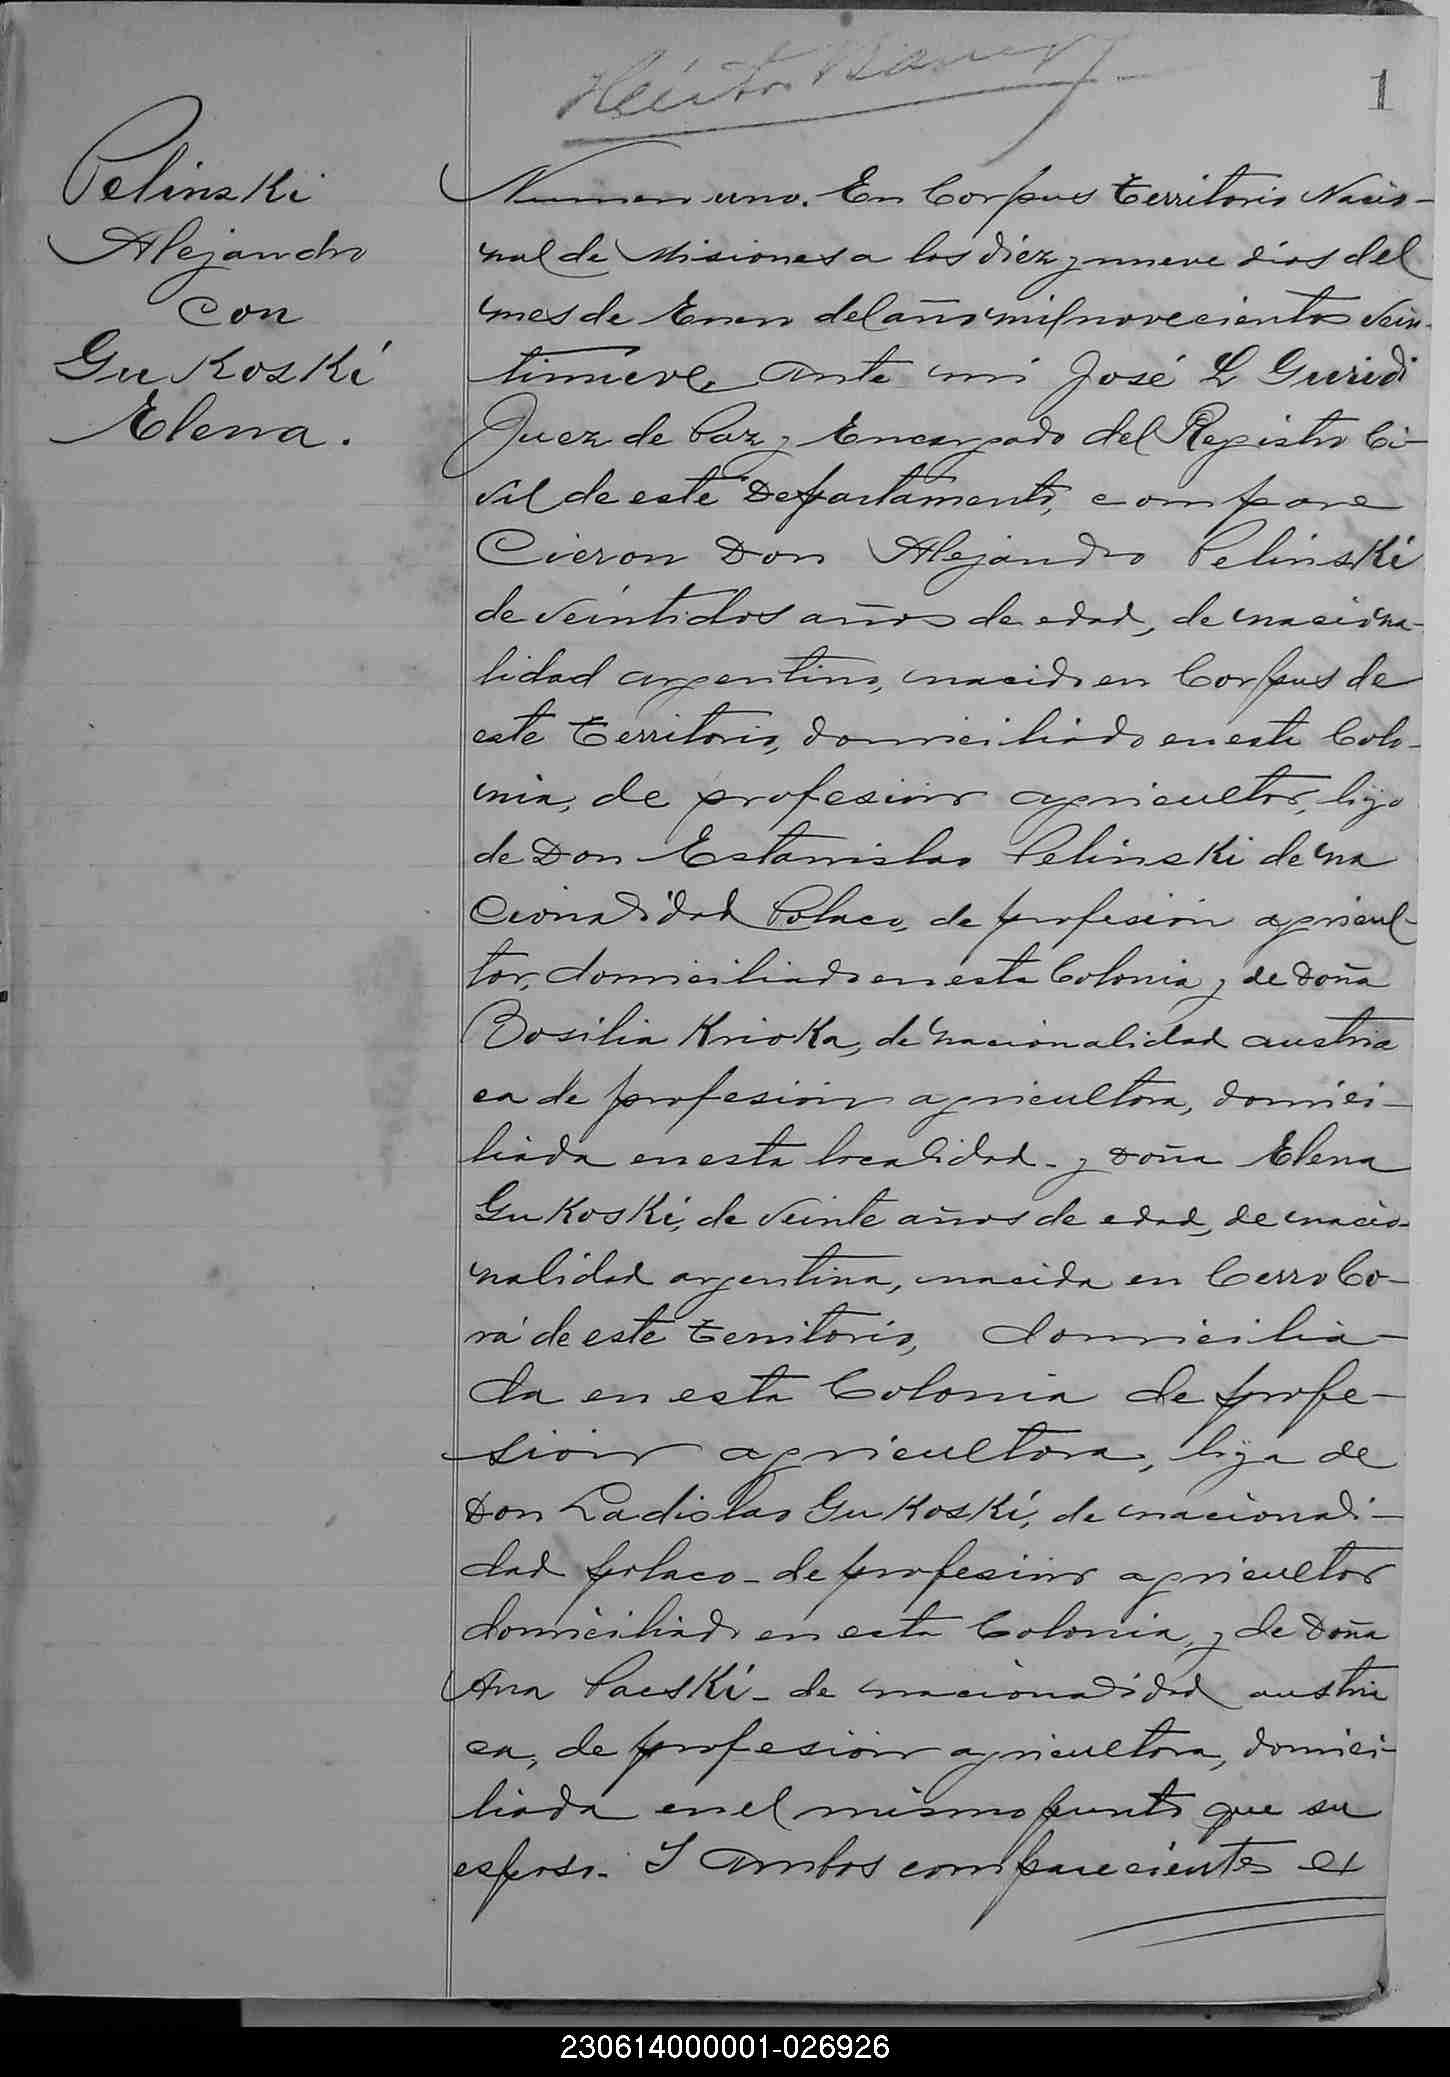 Héctor
1
Pelinski
Alejandro
con
Gukoski
Elena.
Numero uno. En Corpus Territorio Nacio-
nal de Misiones a los diez y nueve dias del
mes de Enero del año mil novecientos vein-
tinueve, ante mi José L Guridi
Juez de Paz y Encargado del Registro Ci-
vil de este Departamento, compare
cieron Don Alejandro Pelinski
de veintidos años de edad, de naciona-
lidad argentino, nacido en Corpus de
este Territorio, domiciliado en esta Colo-
nia, de profesión agricultor, hijo
de Don Estanislao Pelinski de na
cionalidad Polaco, de profesión agricul-
tor, domiciliado en esta Colonia y de Doña
Bosilia Krioka, de nacionalidad austria
ca de profesión agricultora, domici-
liada en esta localidad - y Doña Elena
Gukoski, de veinte años de edad, de nacio-
nalidad argentina, nacida en Cerro Co-
rá de este Territorio, domicilia-
da en esta Colonia de profe-
sión agricultora, hija de
Don Ladislao Gukoski, de nacionali-
dad polaco - de profesión agricultor
domiciliado en esta Colonia, y de Doña
Ana Pacski - de nacionalidad austria
ca, de profesión agricultora, domici-
liada en el mismo punto que su
esposo. Y ambos comparecientes ex
230614000001-026926